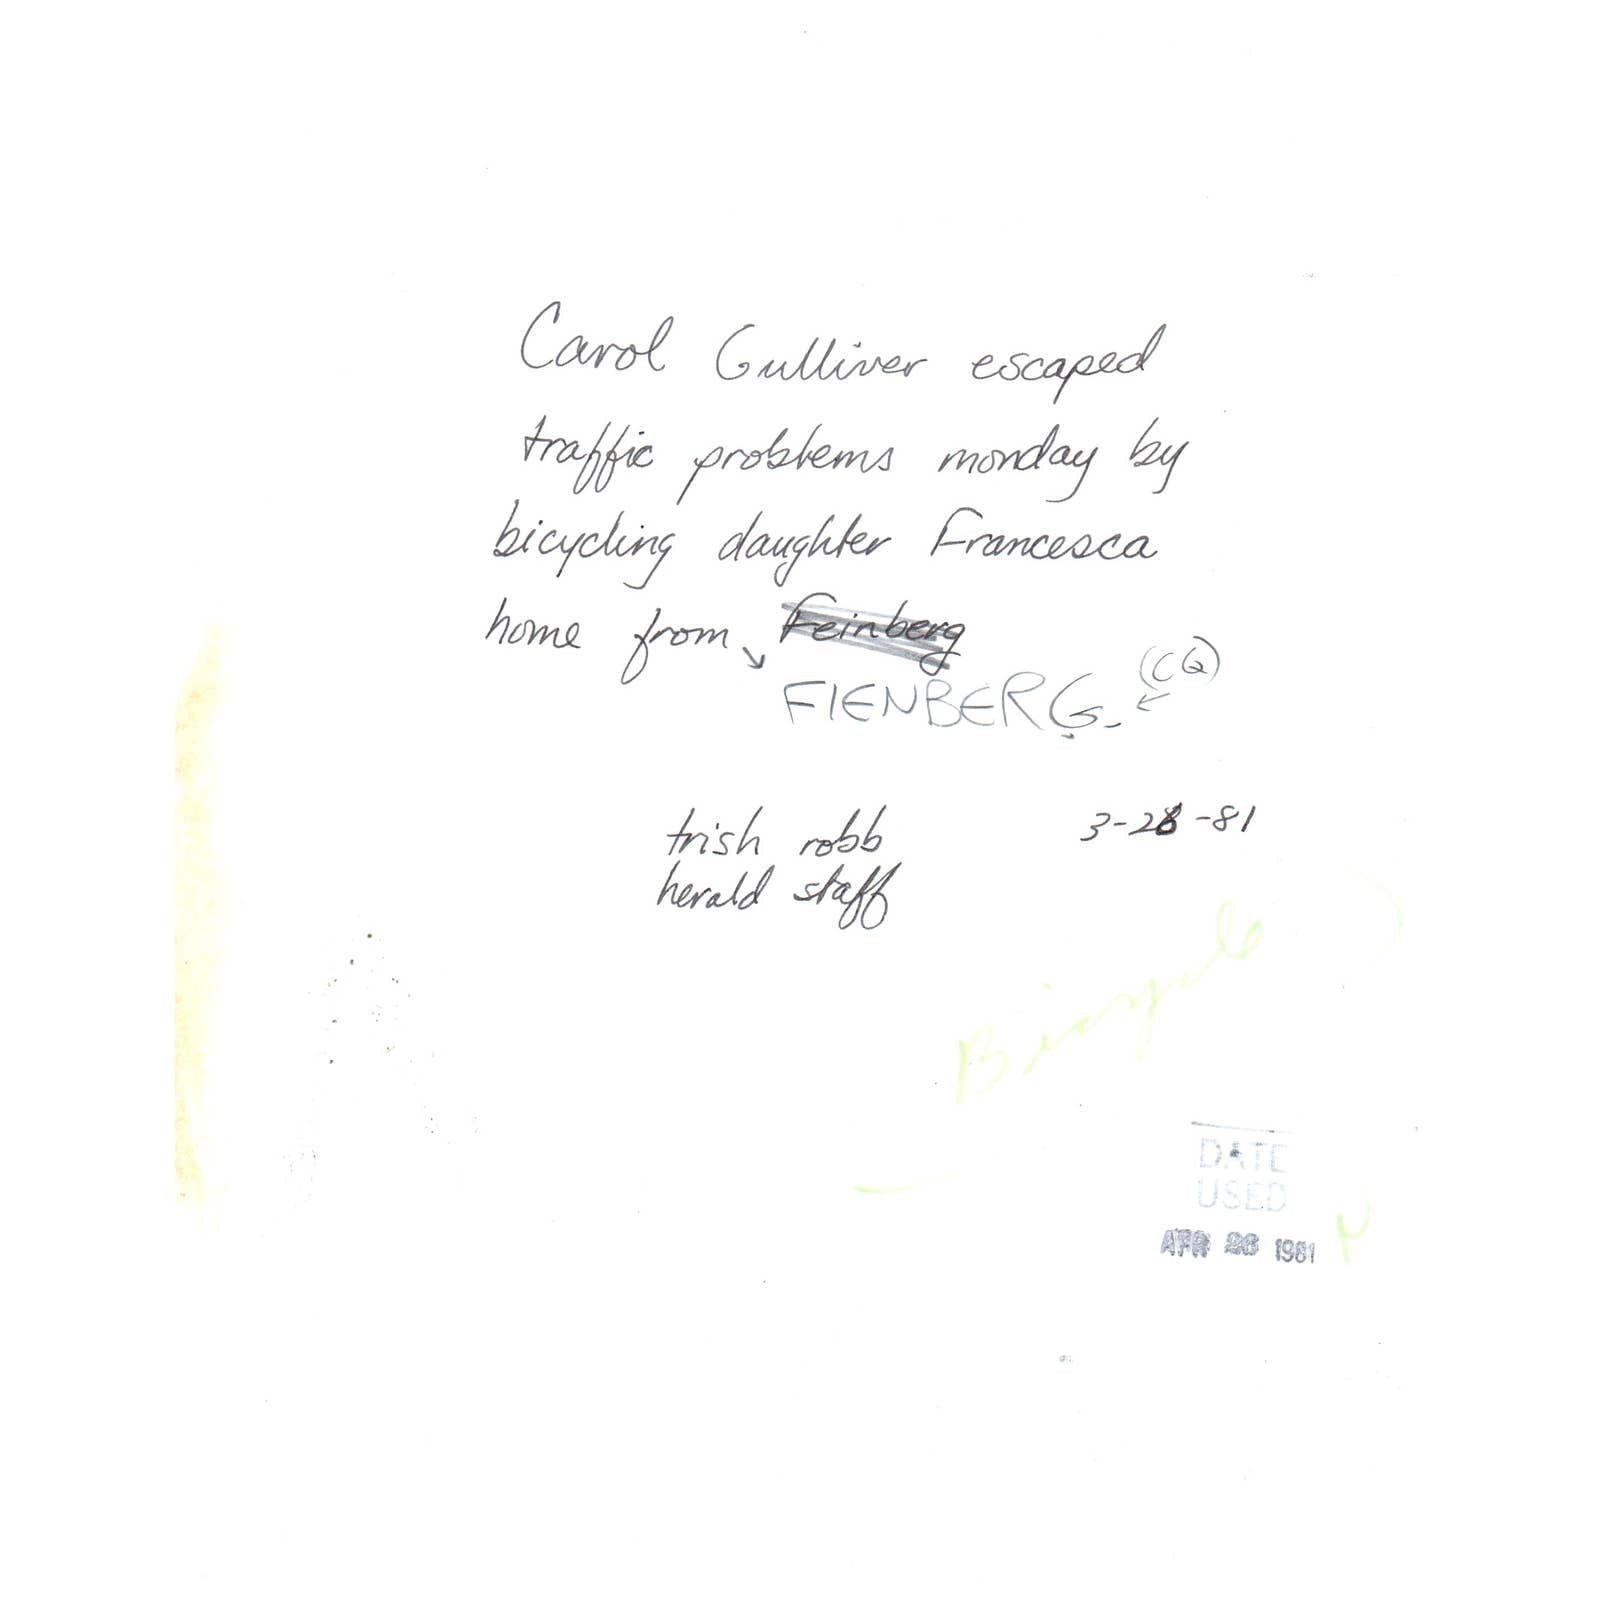 Carol Gulliver escaped
traffic problems monday by
bicycling daughter Francesca
home from Feinberg
FIENBERG. (CQ)
trish robb 3-26-81
herald staff
Bicycle
DATE
USED
APR 26 1981